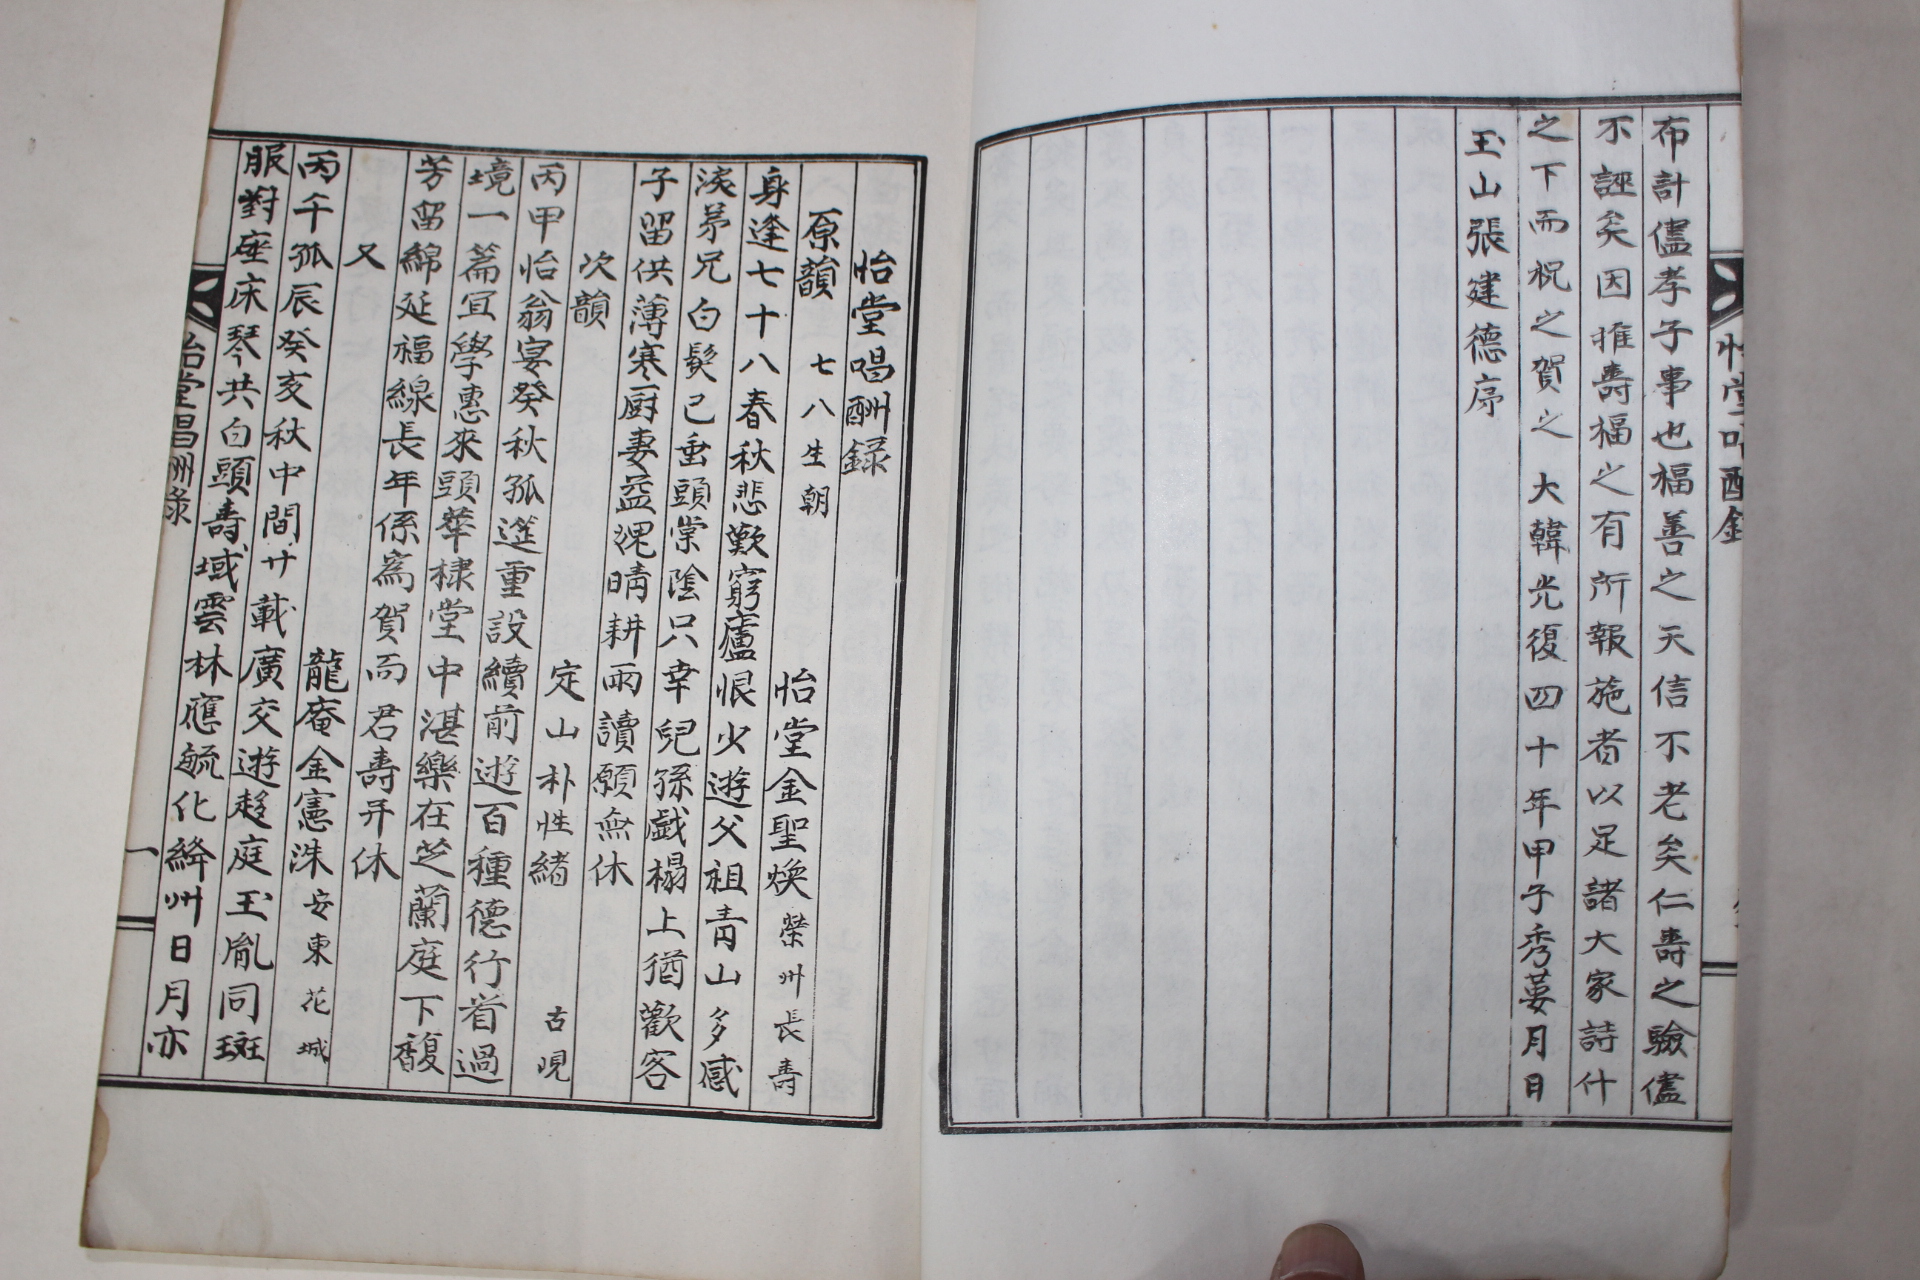 布計儘孝子事也福善之天信不老矣仁壽之驗儘
不誣矣因推壽福之有所報施者以足諸大家詩什
之下而祝之賀之大韓光復四十年甲子秀葽月日
玉山張建德序
怡堂唱酬錄
原韻 七八生朝 怡堂金聖煥 榮州長壽
身逢七十八春秋悲歎窮廬恨少遊父祖靑山多感
淚弟兄白髮已垂頭棠陰只幸兒孫戱榻上猶歡客
子留供薄寒厨妻益渑晴耕雨讀願無休
次韻 定山朴性緖 古晛
丙甲怡翁宴癸秋孤筵重設續前遊百種德行省過
境一篇宜學惠來頭華棣堂中湛樂在芝蘭庭下馥
芳留綿延福線長年係爲賀而君壽并休
又 龍庵金憲洙 安東花城
丙千孤辰癸亥秋中間廿載廣交遊趍庭玉胤同斑
服對座床琴共白頭壽域雲林應毓化絳州日月亦
怡堂唱酬錄
一